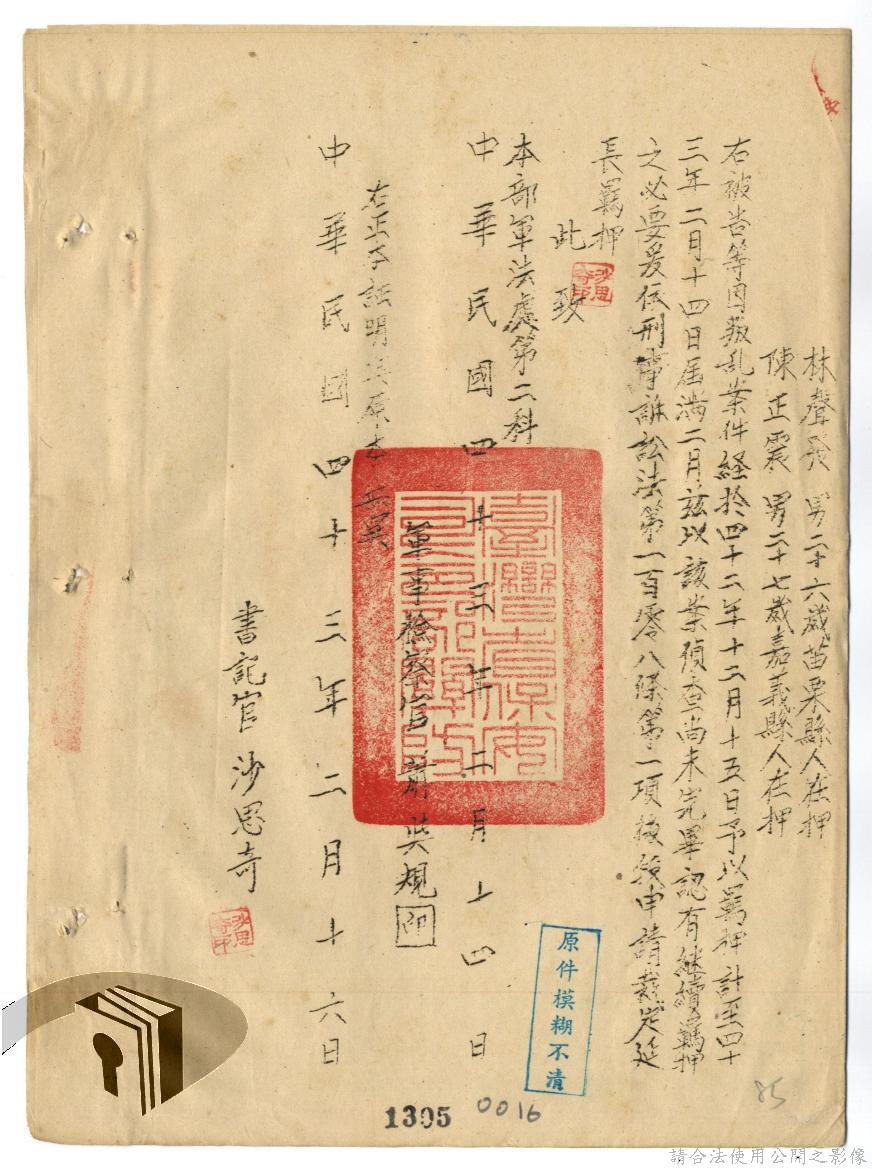 林聲發 男二十六歲苗栗縣人在押
陳正震 男二十七歲嘉義縣人在押
右被告等因叛乱案件経於四十二年十二月十五日予以羈押計至四十
三年二月十四日屆滿二月茲以該案偵查尚未完畢認有継續羈押
之必要爰依刑事訴訟法第一百零八條第一項後段申請裁定延
長羈押
此致
沙思奇印
本部軍法處第二科
中華民國四十三年二月十四日
軍事檢察官 蕭 規 印
右正本証明與原本無異
中華民國四十三年二月十六日
書記官 沙思奇
沙思奇印
臺灣省保安司令部
原件模糊不清
1305
0016
85
請合法使用公開之影像